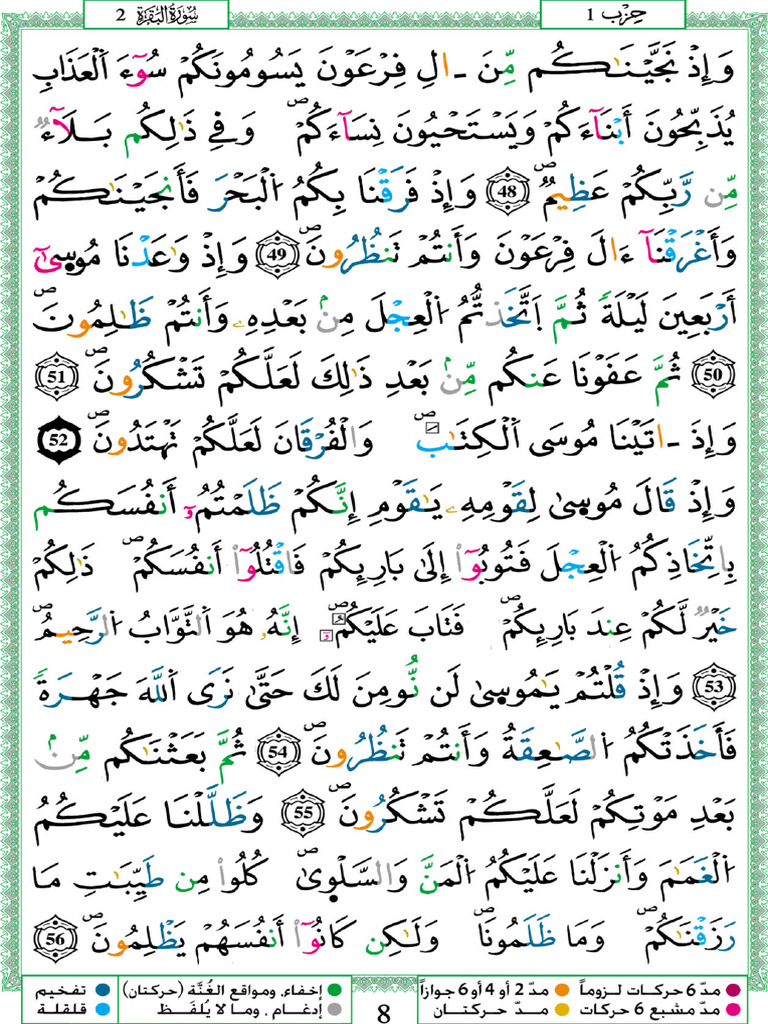 سُورَةُ الْبَقَرَةِ 2
حِزْب 1
وَإِذْ نَجَّيْنَٰكُم مِّنَ ـَالِ فِرْعَوْنَ يَسُومُونَكُمْ سُوٓءَ اَ۬لْعَذَابِ
يُذَبِّحُونَ أَبْنَآءَكُمْ وَيَسْتَحْيُونَ نِسَآءَكُمْۖ وَفِے ذَٰلِكُم بَلَآءٞ
مِّن رَّبِّكُمْ عَظِيمٞۖ 48 وَإِذْ فَرَقْنَا بِكُمُ اُ۬لْبَحْرَ فَأَنجَيْنَٰكُمْ
وَأَغْرَقْنَآ ءَالَ فِرْعَوْنَ وَأَنتُمْ تَنظُرُونَۖ 49 وَإِذْ وَٰعَدْنَا مُوس۪ىٰٓ
أَرْبَعِينَ لَيْلَةٗ ثُمَّ اَ۪تَّخَذتُّمُ اُ۬لْعِجْلَ مِنۢ بَعْدِهِۦ وَأَنتُمْ ظَٰلِمُونَۖ
50 ثُمَّ عَفَوْنَا عَنكُم مِّنۢ بَعْدِ ذَٰلِكَ لَعَلَّكُمْ تَشْكُرُونَۖ 51
وَإِذَ ـاتَيْنَا مُوسَى اَ۬لْكِتَٰبَۖ وَالْفُرْقَانَ لَعَلَّكُمْ تَهْتَدُونَۖ 52
وَإِذْ قَالَ مُوس۪ىٰ لِقَوْمِهِۦ يَٰقَوْمِ إِنَّكُمْ ظَلَمْتُمُۥٓ أَنفُسَكُم
بِاتِّخَاذِكُمُ اُ۬لْعِجْلَ فَتُوبُوٓاْ إِلَىٰ بَارِئِكُمْ فَاقْتُلُوٓاْ أَنفُسَكُمْۖ ذَٰلِكُمْ
خَيْرٞ لَّكُمْ عِندَ بَارِئِكُمْۖ فَتَابَ عَلَيْكُمُۥٓۖ إِنَّهُۥ هُوَ اَ۬لتَّوَّابُ اُ۬لرَّحِيمُۖ
53 وَإِذْ قُلْتُمْ يَٰمُوس۪ىٰ لَن نُّومِنَ لَكَ حَتَّىٰ نَرَى اَ۬للَّهَ جَهْرَةٗ
فَأَخَذَتْكُمُ اُ۬لصَّٰعِقَةُ وَأَنتُمْ تَنظُرُونَۖ 54 ثُمَّ بَعَثْنَٰكُم مِّنۢ
بَعْدِ مَوْتِكُمْ لَعَلَّكُمْ تَشْكُرُونَۖ 55 وَظَلَّلْنَا عَلَيْكُمُ
اُ۬لْغَمَٰمَ وَأَنزَلْنَا عَلَيْكُمُ اُ۬لْمَنَّ وَالسَّلْو۪ىٰۖ كُلُواْ مِن طَيِّبَٰتِ مَا
رَزَقْنَٰكُمْۖ وَمَا ظَلَمُونَاۖ وَلَٰكِن كَانُوٓاْ أَنفُسَهُمْ يَظْلِمُونَۖ 56
مدّ 6 حركات لزوماً مدّ 2 أو 4 أو 6 جوازاً إخفاء، ومواقع الغُنَّة (حركتان) تفخيم
مدّ مشبع 6 حركات مدّ حركتان إدغام، وما لا يُلفَظ قلقلة
8